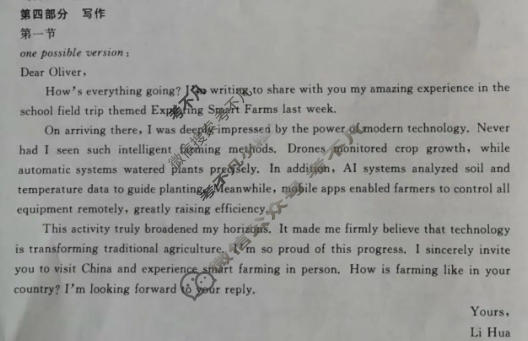 第四部分 写作
第一节
one possible version:
Dear Oliver,
How's everything going? I'm writing to share with you my amazing experience in the
school field trip themed Exploring Smart Farms last week.
On arriving there, I was deeply impressed by the power of modern technology. Never
had I seen such intelligent farming methods. Drones monitored crop growth, while
automatic systems watered plants precisely. In addition, AI systems analyzed soil and
temperature data to guide planting. Meanwhile, mobile apps enabled farmers to control all
equipment remotely, greatly raising efficiency.
This activity truly broadened my horizons. It made me firmly believe that technology
is transforming traditional agriculture. I'm so proud of this progress. I sincerely invite
you to visit China and experience smart farming in person. How is farming like in your
country? I'm looking forward to your reply.
Yours,
Li Hua